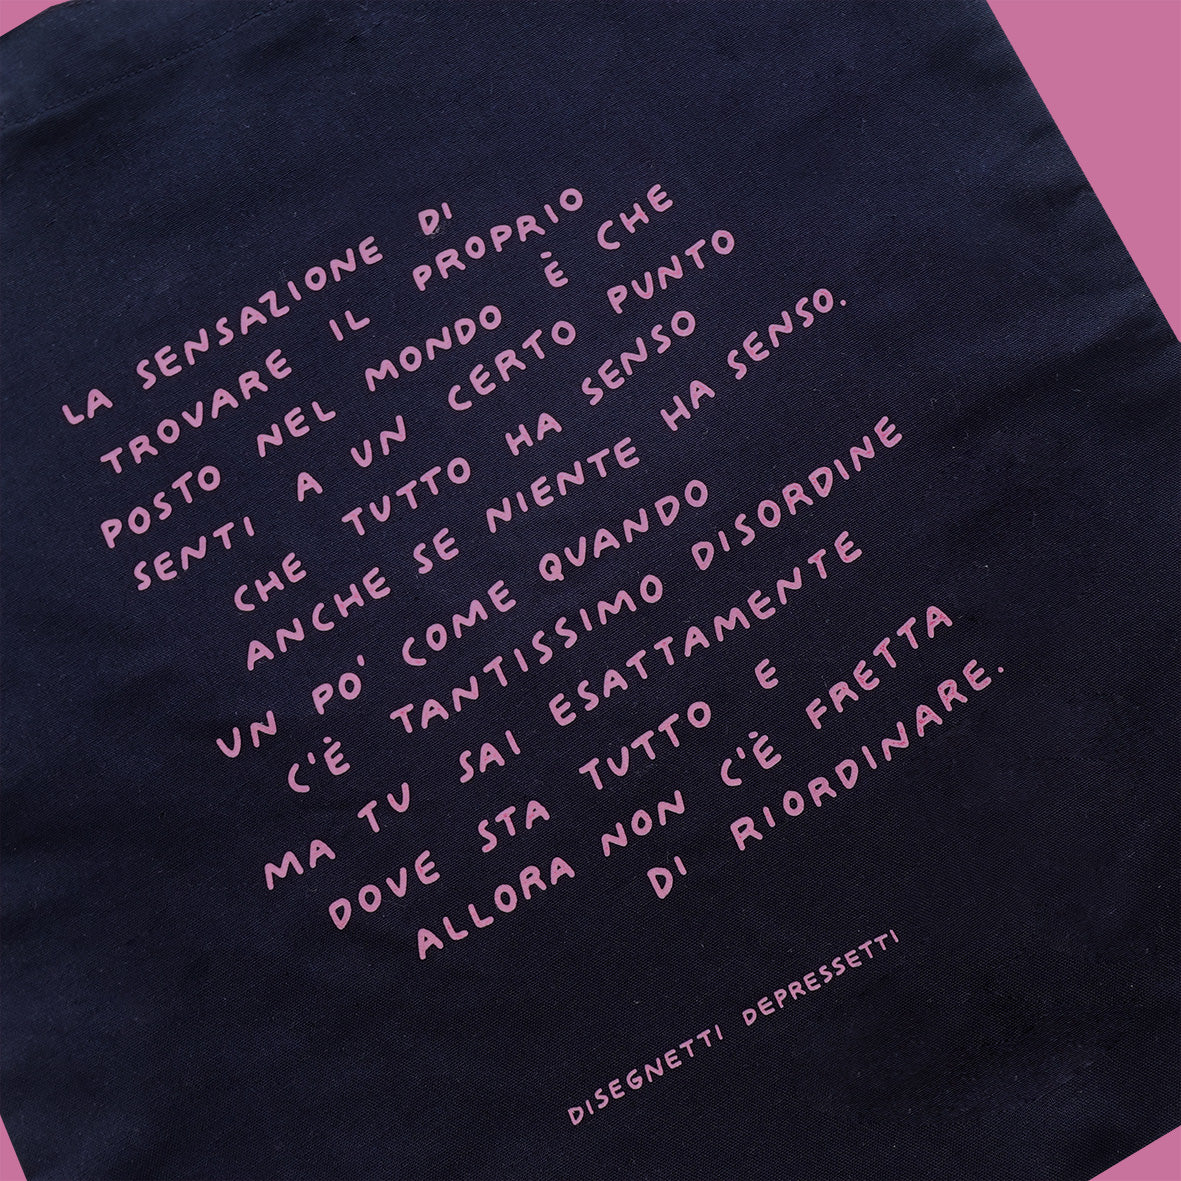 LA SENSAZIONE DI
TROVARE IL PROPRIO
POSTO NEL MONDO È CHE
SENTI A UN CERTO PUNTO
CHE TUTTO HA SENSO
ANCHE SE NIENTE HA SENSO.
UN PO' COME QUANDO
C'È TANTISSIMO DISORDINE
MA TU SAI ESATTAMENTE
DOVE STA TUTTO E
ALLORA NON C'È FRETTA
DI RIORDINARE.
DISEGNETTI DEPRESSETTI